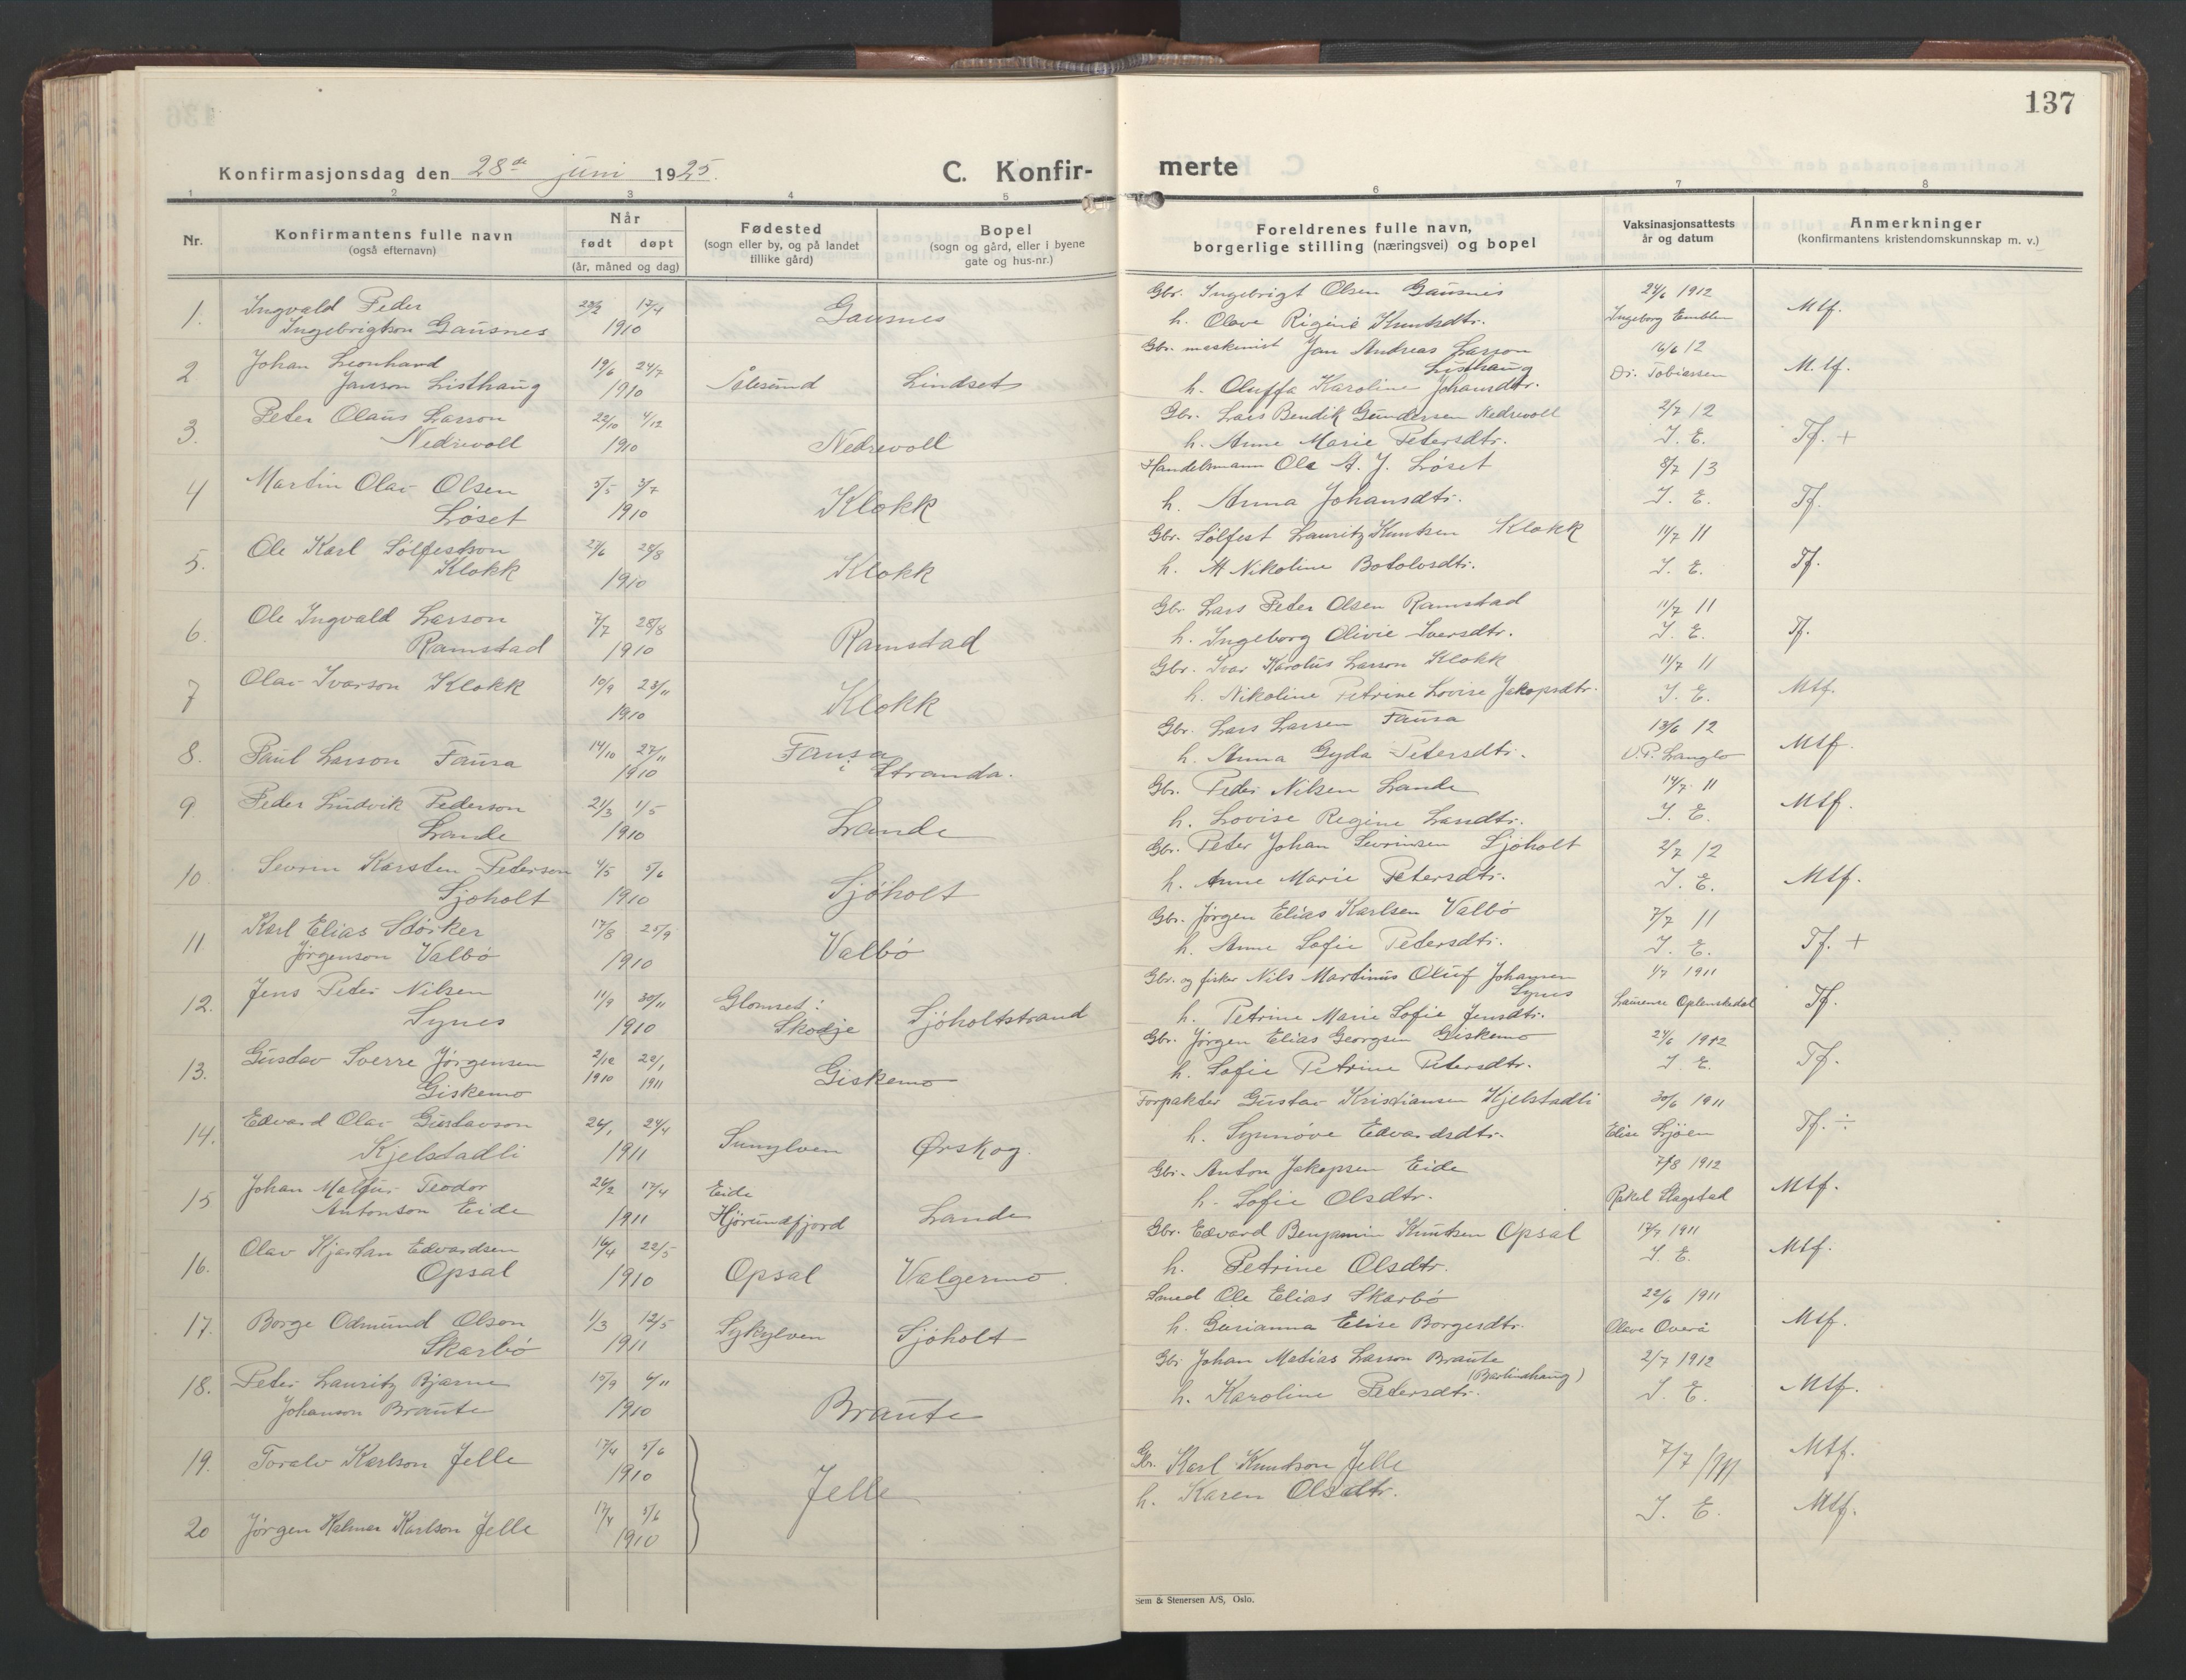 137
Konfirmasjonsdag den 28de juni 1925.
C. Konfir-
merte
1 2 3 4 5 6 7 8
Nr.
Konfirmantens fulle navn
(også efternavn)
Når
født døpt
(år, måned og dag)
Fødested
(sogn eller by, og på landet
tillike gård)
Bopel
(sogn og gård, eller i byene
gate og hus-nr.)
Foreldrenes fulle navn,
borgerlige stilling (næringsvei) og bopel
Vaksinasjonsattests
år og datum
Anmerkninger
(konfirmantens kristendomskunnskap m. v.)
1. Ingvald Peder 17/4 Gausnes Gbr. Ingebrigt Olsen Gausnes 24/6 1912 Mtf.
Ingebrigtson Gausnes 1910 h. Olave Regine Knutsdtr. Ingeborg Emblem
2 Johan Leonhard 19/6 24/7 Gbr. maskinist Jan Andreas Larson 16/6 12 M.tf.
Janson Listhaug 1910 Aalesund Lindset Listhaug
h. Oluffa Karoline Johansdtr. Dr. Tobiassen
3. Peter Olaus Larson 22/10 4/12 Nedrevoll Gbr. Lars Bendik Gundersen Nedrevoll 2/7 12 Tf. +
Nedrevoll 1910 h. Anne Marie Petersdtr. I. E.
4 Martin Olav Olsen 5/5 3/7 Klokk Handelsmann Ole A. J. Løset 8/7 13 Tf.
Løset 1910 h. Anna Johansdtr. I. E.
5. Ole Karl Sølfestson 28/8 Klokk Gbr. Sølfest Lauritz Knutsen Klokk 14/7 11 Tf.
Klokk 1910 h. A Nikoline Botolvsdtr. I. E.
6. Ole Ingvald Larson 7/7 28/8 Ramstad Gbr. Lars Peter Olsen Ramstad 11/7 11 Tf.
Ramstad 1910 h. Ingeborg Olivie Iversdtr. I. E.
7 Olav Ivarson Klokk 10/9 23/11 Klokk Gbr. Ivar Karolus Larson Klokk 11/7 11 Mtf.
1910 h. Nikoline Petrine Lovise Jakopsdtr. I. E.
8. Paul Larson Fausa 14/10 27/11 Fausa Gbr. Lars Larsen Fausa 13/6 12 Mtf.
1910 i Stranda. h. Anna Gyda Petersdtr. O. P. Langlo
9. Peder Ludvik Pederson 21/3 1/5 Lande Gbr. Peder Nilsen Lande 14/7 11 Mtf.
Lande 1910 h. Lovise Regine Larsdtr. I. E.
10 Sevrin Karsten Peterson 4/5 5/6 Sjøholt Gbr. Peter Johan Sevrinsen Sjøholt 2/7 12 Mtf.
Sjøholt 1910 h. Anne Marie Petersdtr. I. E.
11 Karl Elias Størker 17/8 25/9 Valbø Gbr. Jørgen Elias Karlsen Valbø 7/7 11 Tf. +
Jørgenson Valbø 1910 h. Anne Sofie Petersdtr. I. E.
12. Jens Peter Nilsen 11/9 30/11 Glomset: Sjøholtstrand Gbr. og fisker Nils Martinus Oluf Johansen 1/7 1911 Tf.
Synes 1910 Skodje Synes
h. Petrine Marie Sofie Jensdtr. Laurense Oplenskedal
13. Gustav Sverre Jørgensen 2/12 22/1 Giskemo Gbr. Jørgen Elias Georgsen Giskemo 24/6 1912 Tf.
Giskemo 1910 1911 h. Sofie Petrine Petersdtr. I. E.
14. Edvard Olav Gustavson 26/1 24/4 Sunylven Ørskog. Forpakter Gustav Kristiansen Kjelstadli 30/6 1911 Tf. ÷
Kjelstadli 1911 h. Synnøve Edvardsdtr. Elise Sjøen
15 Johan Teodor 26/2 17/4 Eide Lande Gbr. Anton Jakopsen Eide 7/8 1912 Mtf.
Antonson Eide 1911 Hjørundfjord h. Sofie Olsdtr. Rakel Slagstad
16. Olav Kjartan Edvardsen 16/4 22/5 Opsal Valgermo. Gbr. Edvard Benjamin Knutsen Opsal 17/7 1911 Mtf.
Opsal 1910 h. Petrine Olsdtr. I. E.
17. Borge Odmund Olson 1/3 12/5 Sykylven Sjøholt Smed Ole Elias Skarbø 22/6 1911 Mtf.
Skarbø 1911 h. Gurianna Elise Borgesdtr. Olave Overå
18. Peter Lauritz Bjarne 15/9 6/11 Braute Gbr Johan Matias Larson Braute 2/7 1912 Mtf.
Johanson Braute 1910 (Berlinhaug)
h. Karoline Petersdtr. I. E.
19. Toralv Karlson Jelle 17/4 5/6 Jelle Gbr. Karl Knutson Jelle 7/7 1911 Mtf.
1910 h. Karen Olsdtr.
20 Jørgen Halmar Karlson Jelle 17/4 5/6 I. E. Mtf.
1910
Sem & Stenersen A/S, Oslo.